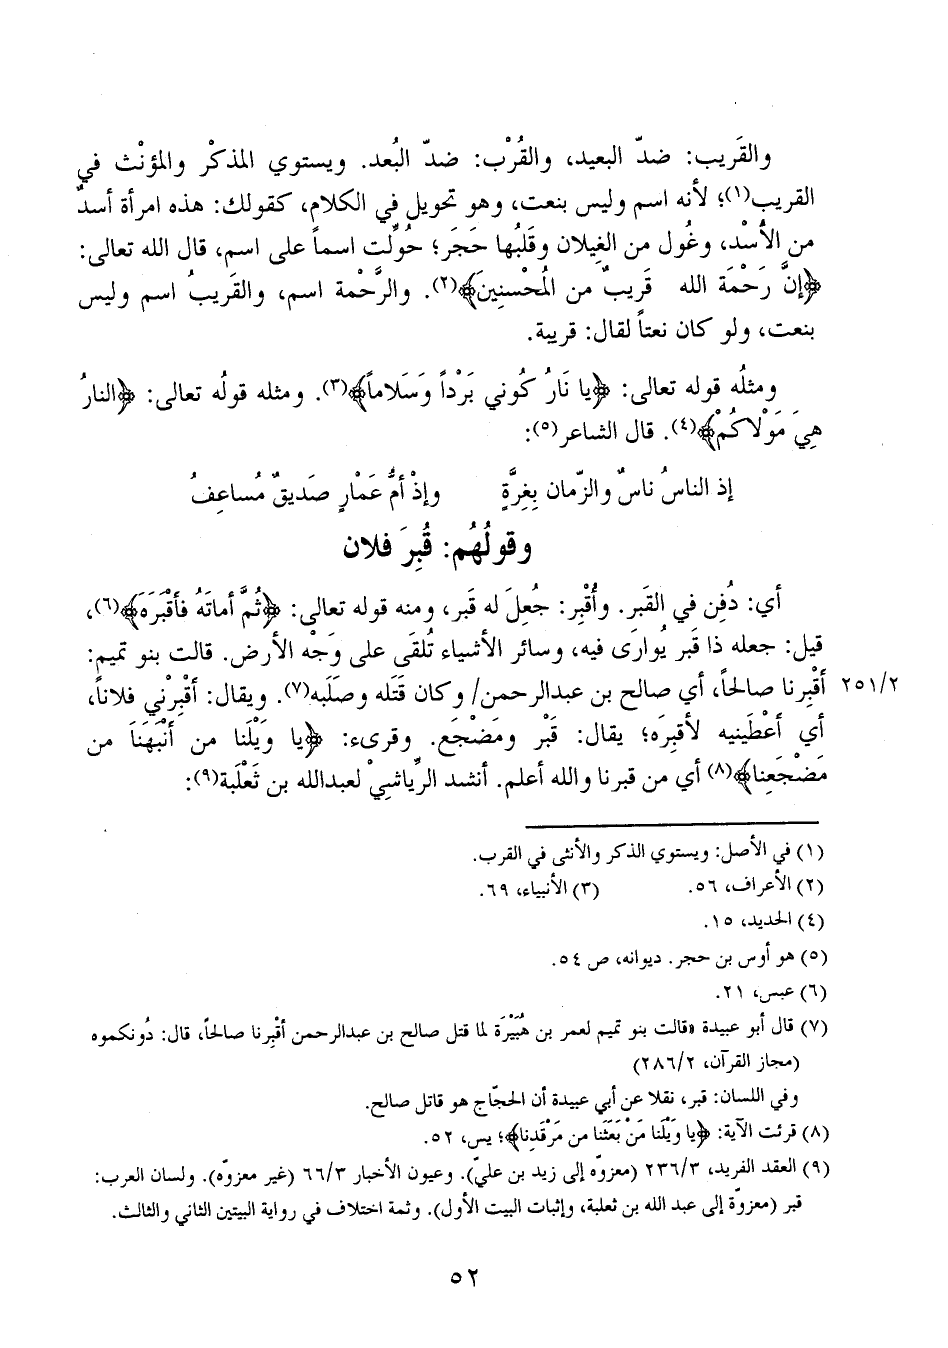 والقَريب: ضدّ البعيد، والقُرْب: ضدّ البُعد. ويستوي المذكْر والمؤنْث في
القريب(١)؛ لأنه اسم وليس بنعت، وهو تحويل في الكلام، كقولك: هذه امرأة أسدٌ
من الأُسْد، وغُول من الغِيلان وقَلبُها حَجَر؛ حُوِّلت اسماً على اسم، قال الله تعالى:
﴿إنَّ رَحْمَة الله قَريبٌ من المُحْسنِينَ﴾(٢). والرَّحْمة اسم، والقَريبُ اسم وليس
بنعت، ولو كان نعتاً لقال: قريبة.
ومثلُه قوله تعالى: ﴿يا نَارُ كُوني بَرْداً وَسَلاماً﴾(٣). ومثله قولُه تعالى: ﴿النارُ
هِيَ مَوْلاكُمْ﴾(٤). قال الشاعر(٥):
إذ الناسُ ناسٌ والزّمان بِغِرَّةٍ وإذْ أمُّ عَمْارٍ صَديقٌ مُساعِفُ
وقولُهُم: قُبِرَ فلان
أي: دُفِن في القَبر. وأُقْبِر: جُعِلَ له قَبر، ومنه قوله تعالى: ﴿ثُمَّ أماتَهُ فأقْبَرَهَ﴾(٦)،
قيل: جعله ذا قَبر يُوارَى فيه، وسائر الأشياء تُلقَى على وَجْه الأرض. قالت بنو تميم:
أقْبِرنا صالحاً، أي صالح بن عبدالرحمن/ وكان قَتَله وصَلَبه(٧). ويقال: أقْبِرْني فلاناً، ٢٥١/٢
أي أعْطَينيه لأقبِرَه؛ يقال: قَبْر ومَضْجَع. وقرىء: ﴿يا وَيْلَنا من أنْبَهَنَا من
مَضْجَعِنا﴾(٨) أي من قبرنا والله أعلم. أنشد الرِّياشيْ لعبدالله بن ثَعْلَبة(٩):
(١) في الأصل: ويستوي الذكر والأنثى في القرب.
(٢) الأعراف، ٥٦. (٣) الأنبياء، ٦٩.
(٤) الحديد، ١٥.
(٥) هو أوس بن حجر. ديوانه، ص ٥٤.
(٦) عبس، ٢١.
(٧) قال أبو عبيدة «قالت بنو تميم لعمر بن هُبَيْرَة لما قتل صالح بن عبدالرحمن أقْبِرنا صالحاً، قال: دُونكموه
(مجاز القرآن، ٢٨٦/٢)
وفي اللسان: قبر، نقلا عن أبي عبيدة أن الحجّاج هو قاتل صالح.
(٨) قرئت الآية: ﴿يا وَيْلَنا مَنْ بَعَثَنا من مَرْقَدِنا﴾؛ يس، ٥٢.
(٩) العقد الفريد، ٢٣٦/٣ (معزوّه إلى زيد بن عليّ). وعيون الأخبار ٦٦/٣ (غير معزوّه). ولسان العرب:
قبر (معزوّة إلى عبد الله بن ثعلبة، وإثبات البيت الأول). وثمة اختلاف في رواية البيتين الثاني والثالث.
٥٢